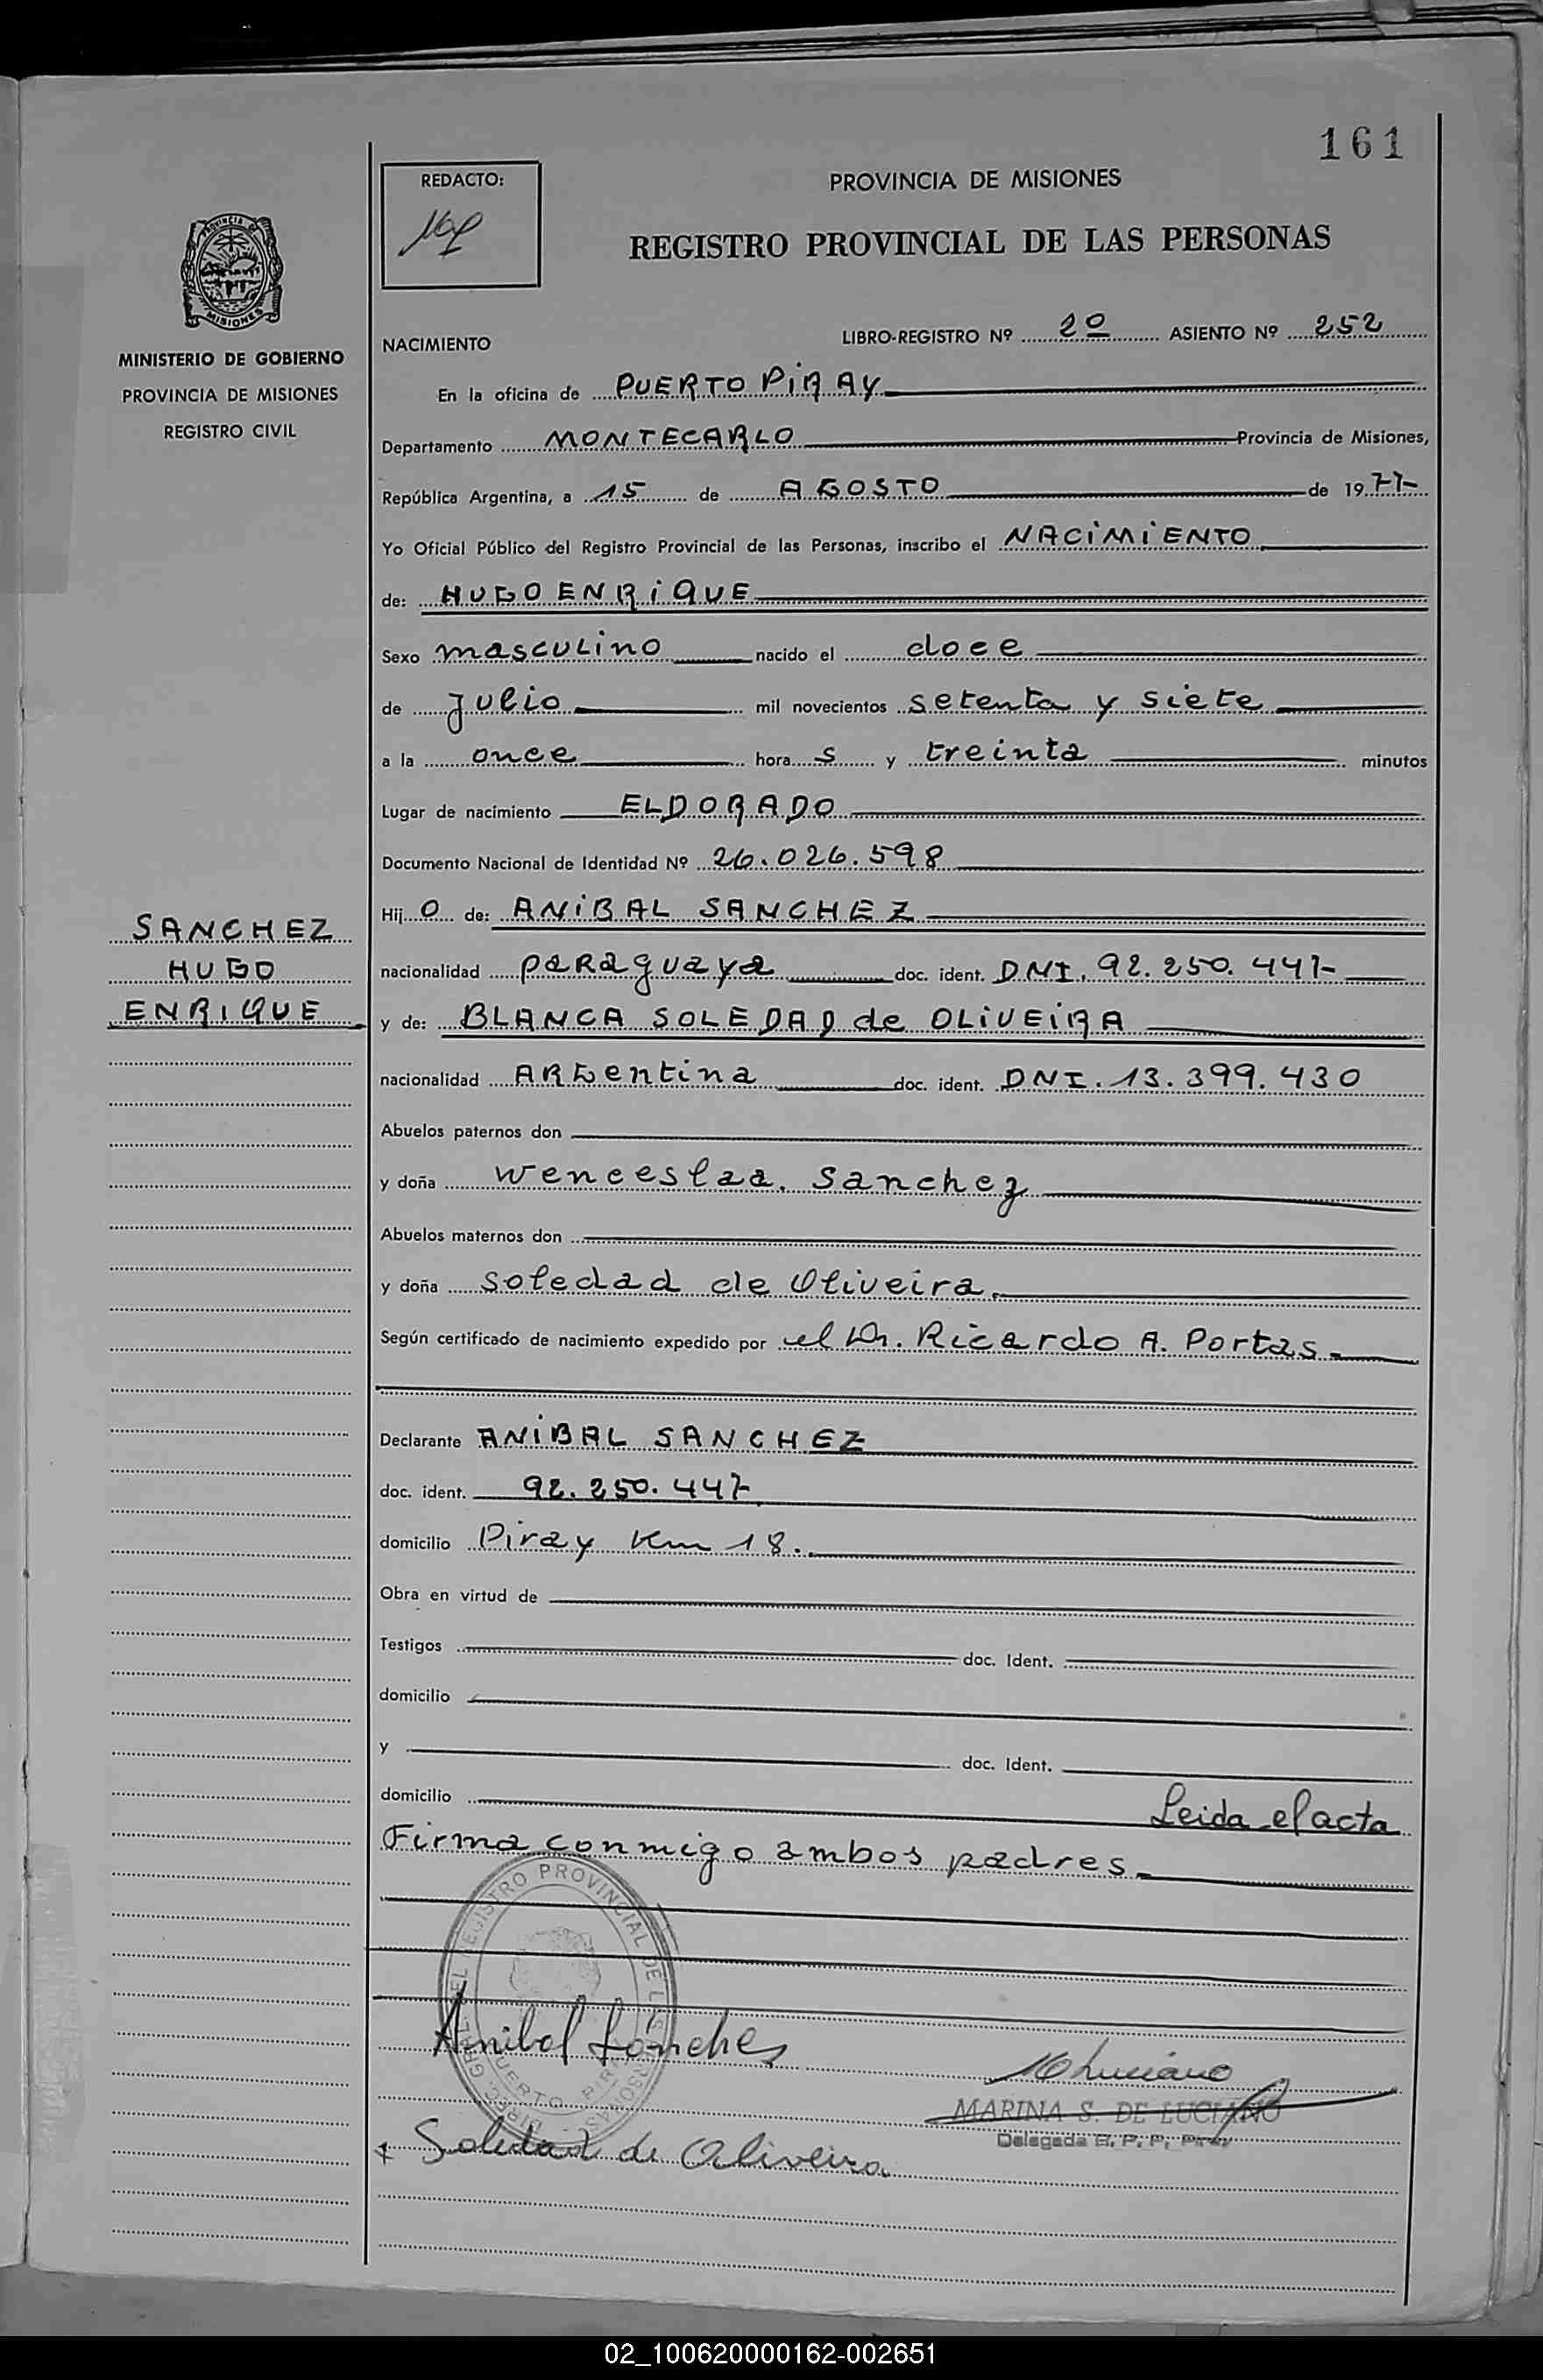 161
REDACTO:
PROVINCIA DE MISIONES
REGISTRO PROVINCIAL DE LAS PERSONAS
PROVINCIA DE
MISIONES
MINISTERIO DE GOBIERNO
PROVINCIA DE MISIONES
REGISTRO CIVIL
NACIMIENTO
LIBRO-REGISTRO Nº 2º ASIENTO Nº 252
En la oficina de PUERTO PIRAY
Departamento MONTECARLO Provincia de Misiones,
República Argentina, a 15 de AGOSTO de 1977-
Yo Oficial Público del Registro Provincial de las Personas, inscribo el NACIMIENTO
de: HUGO ENRIQUE
Sexo masculino nacido el doce
de julio mil novecientos setenta y siete
a la once hora s y treinta minutos
Lugar de nacimiento ELDORADO
Documento Nacional de Identidad Nº 26.026.598
Hij o de: ANIBAL SANCHEZ
SANCHEZ
HUGO
ENRIQUE
nacionalidad paraguaya doc. ident. DNI. 92.250.447-
y de: BLANCA SOLEDAD de OLIVEIRA
nacionalidad ARGentina doc. ident. DNI. 13.399.430
Abuelos paternos don
y doña Wenceslaa. Sanchez
Abuelos maternos don
y doña Soledad de Oliveira.
Según certificado de nacimiento expedido por el Dr. Ricardo A. Portas.
Declarante ANIBAL SANCHEZ
doc. ident. 92.250.447
domicilio Piray Km 18.
Obra en virtud de
Testigos doc. Ident.
domicilio
y doc. Ident.
domicilio Leida el acta
Firma conmigo ambos padres
DIREC. GRAL. DEL REGISTRO PROVINCIAL DE LAS PERSONAS
PUERTO PIRAY
Anibal Sanches
M Luciano
MARINA S. DE LUCIANO
Delegada R. P. P. Piray
+ Soledad de Oliveira
02_100620000162-002651